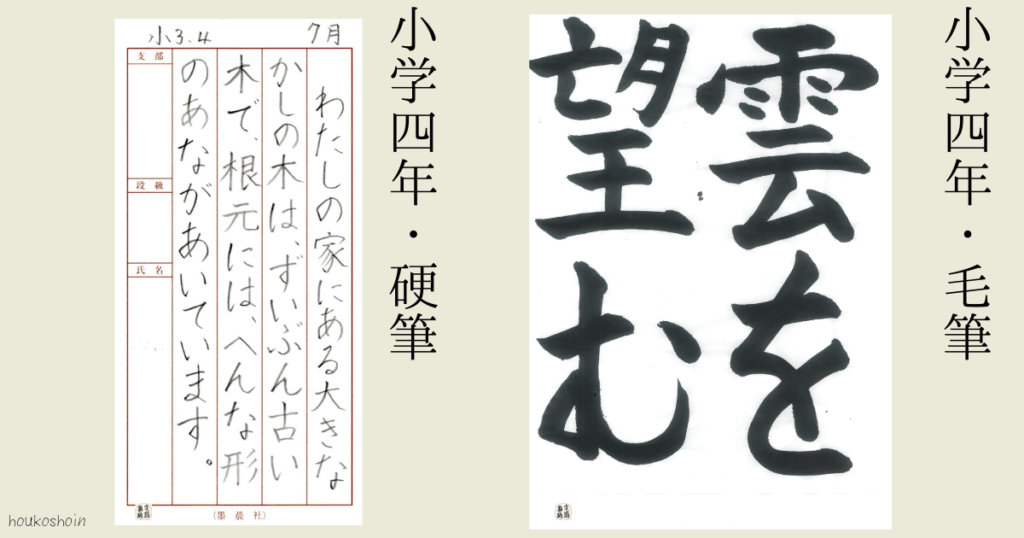 小学四年・毛筆
雲を
望む
小学四年・硬筆
小3.4 7月
わたしの家にある大きな
かしの木は、ずいぶん古い
木で、根元には、へんな形
のあながあいています。
支部
段級
氏名
(墨晨社)
houkoshoin